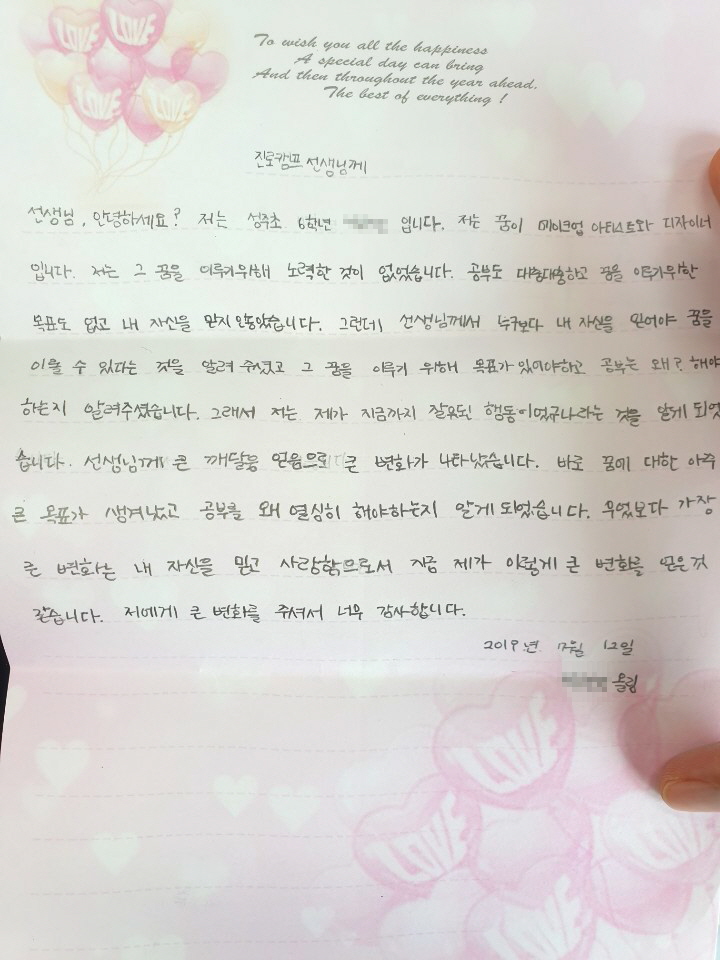 LOVE LOVE
LOVE LOVE
To wish you all the happiness
A special day can bring
And then throughout the year ahead.
The best of everything !
진로캠프 선생님께
선생님, 안녕하세요? 저는 성주초 6학년 입니다. 저는 꿈이 메이크업 아티스트와 디자이너
입니다. 저는 그 꿈을 이루기위해 노력한 것이 없었습니다. 공부도 대충대충하고 꿈을 이루기위한
목표도 없고 내 자신을 믿지 않았습니다. 그런데 선생님께서 누구보다 내 자신을 믿어야 꿈을
이룰 수 있다는 것을 알려 주셨고 그 꿈을 이루기 위해 목표가 있어야하고 공부는 왜? 해야
하는지 알려주셨습니다. 그래서 저는 제가 지금까지 잘못된 행동이였구나라는 것을 알게 되었
습니다. 선생님께 큰 깨달음 얻음으로 큰 변화가 나타났습니다. 바로 꿈에 대한 아주
큰 목표가 생겨났고 공부를 왜 열심히 해야하는지 알게 되었습니다. 무엇보다 가장
큰 변화는 내 자신을 믿고 사랑함으로서 지금 제가 이렇게 큰 변화를 얻은것
같습니다. 저에게 큰 변화를 주셔서 너무 감사합니다.
2019년 12일
올림
LOVE
LOVE LOVE
LOVE